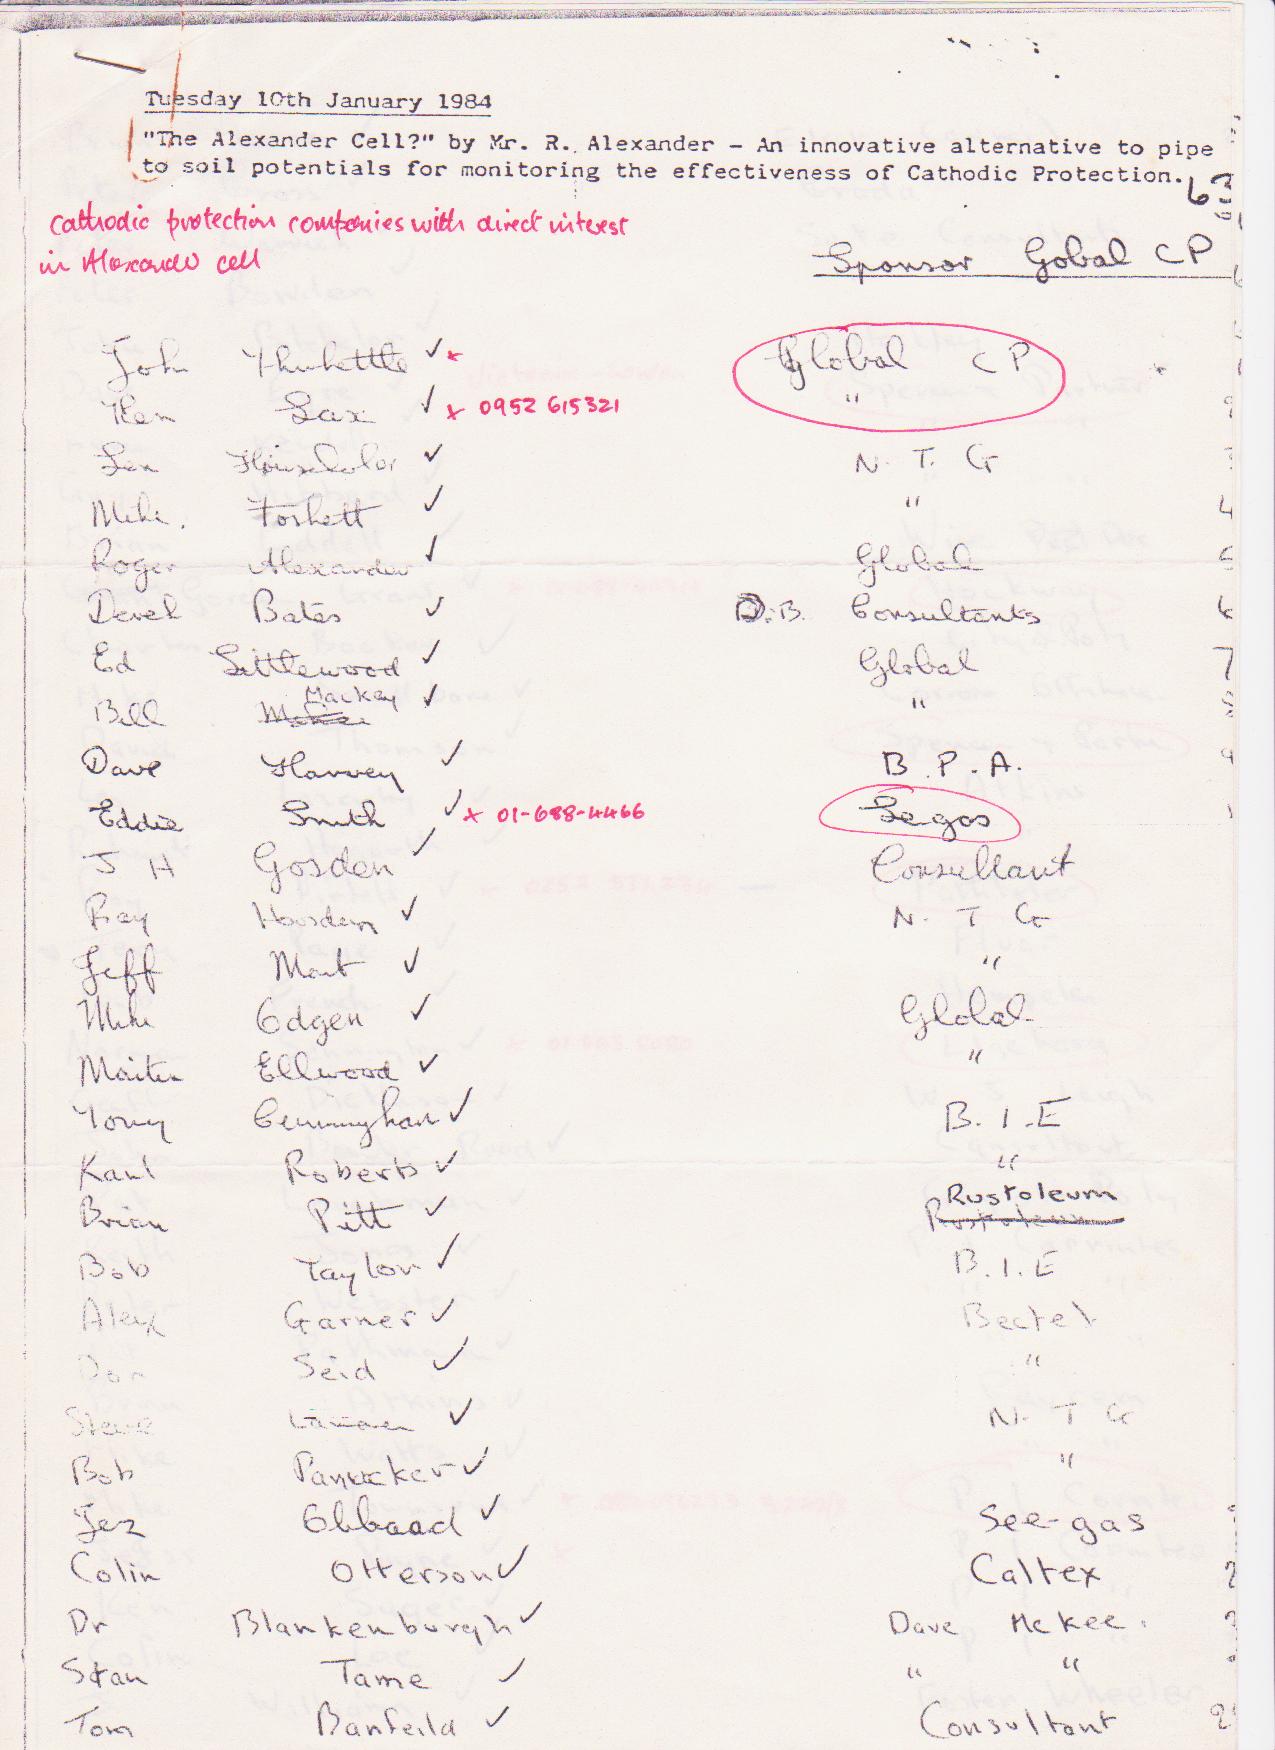 Tuesday 10th January 1984
"The Alexander Cell?" by Mr. R. Alexander - An innovative alternative to pipe
to soil potentials for monitoring the effectiveness of Cathodic Protection.
63
Cathodic protection companies with direct interest
in Alexander cell
Sponsor Gobal CP
John Thukettle ✓ x Global CP
Ken Sax ✓ x 0952 615321 "
Len ✓ N. T. G
Mike. Foskett ✓ " 4
Roger Alexander ✓ Global 5
Derek Bates ✓ D.B. Consultants 6
Ed Littlewood ✓ Global 7
Bill Mackey ✓ "
Dave Harvey ✓ B.P.A. 9
Eddie Smith ✓ x 01-688-4466 Segas
J H Gosden ✓ Consultant
Ray Housden ✓ N. T G
Jeff Mont ✓ "
Mike Edgen ✓ Global
Martin Ellwood ✓ "
Tony Cunningham ✓ B.I.E
Karl Roberts ✓ "
Brian Pitt ✓ Rustoleum
Bob Taylor ✓ B.I.E
Alex Garner ✓ Bectel
Don Seid ✓ "
Steve ✓ N. T G
Bob Panecker ✓ "
Jez Ebbaad ✓ See-gas
Colin Otterson ✓ Caltex
Dr Blankenburgh ✓ Dave McKee.
Stan Tame ✓ " "
Tom Banfeild ✓ Consultant